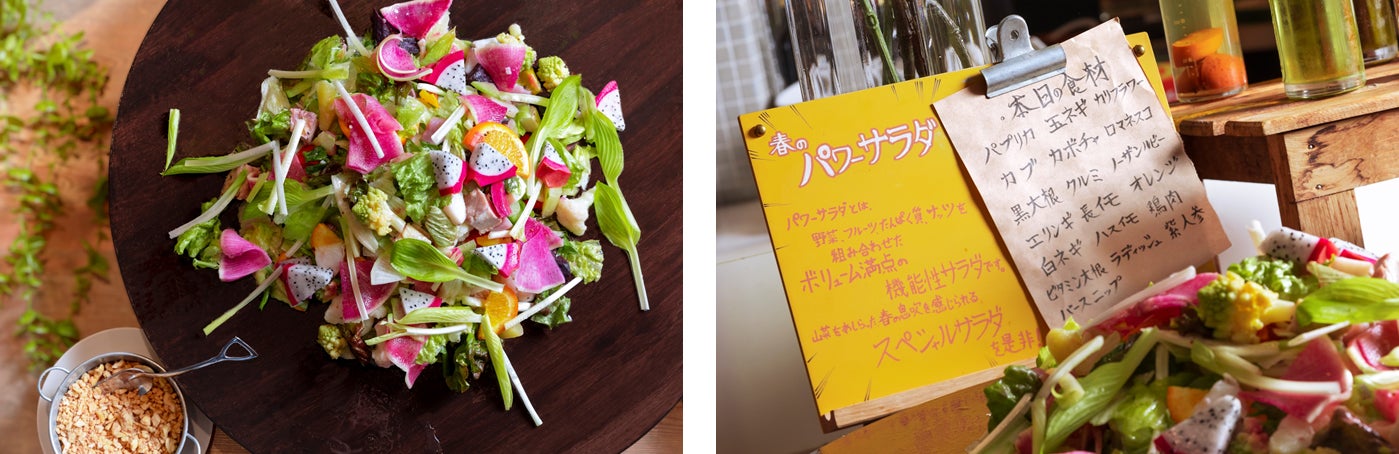 春の
パワーサラダ
パワーサラダとは、
野菜、フルーツ、たんぱく質、ナッツを
組み合わせた
ボリューム満点の
機能性サラダです。
山菜をあしらった春の息吹を感じられる
スペシャルサラダ
を是非
本日の食材
パプリカ 玉ネギ カリフラワー
カブ カボチャ ロマネスコ
黒大根 クルミ ノーザンルビー
エリンギ 長イモ オレンジ
白ネギ ハスイモ 鶏肉
ビタミン大根 ラディッシュ 紫人参
パースニップ